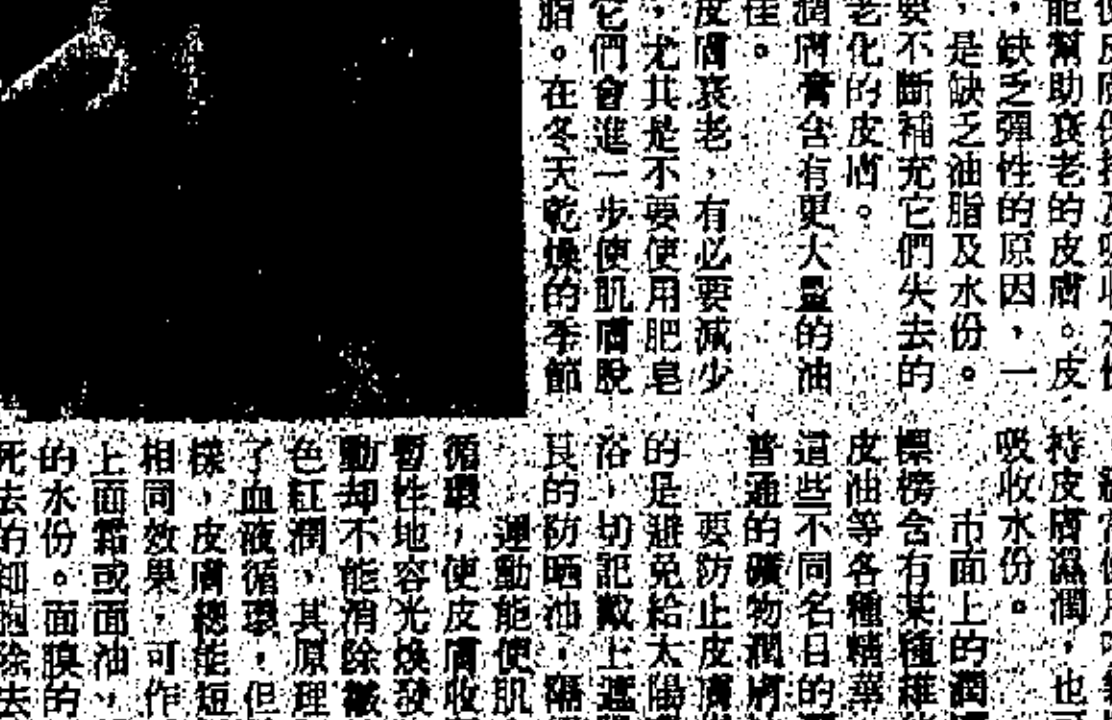 能幫助衰老的皮膚。皮
，缺乏彈性的原因，一
，是缺乏油脂及水份。
要不斷補充它們失去的
老化的皮膚。
潤膚膏含有更大量的油
佳。
皮膚衰老，有必要減少
，尤其是不要使用肥皂
它們會進一步使肌膚脫
脂。在冬天乾燥的季節
持皮膚濕潤，也
吸收水份。
市面上的潤
標榜含有某種維
皮油等各種精華
這些不同名目的
普通的礦物潤膚
要防止皮膚
的是避免給太陽
浴，切記戴上遮
良的防晒油，隔
運動能使肌
循環，使皮膚收
暫性地容光煥發
動却不能消除皺
色紅潤，其原理
了血液循環，但
樣，皮膚總能短
相同效果，可作
上面霜或面油，
的水份。面膜的
死去的細胞除去